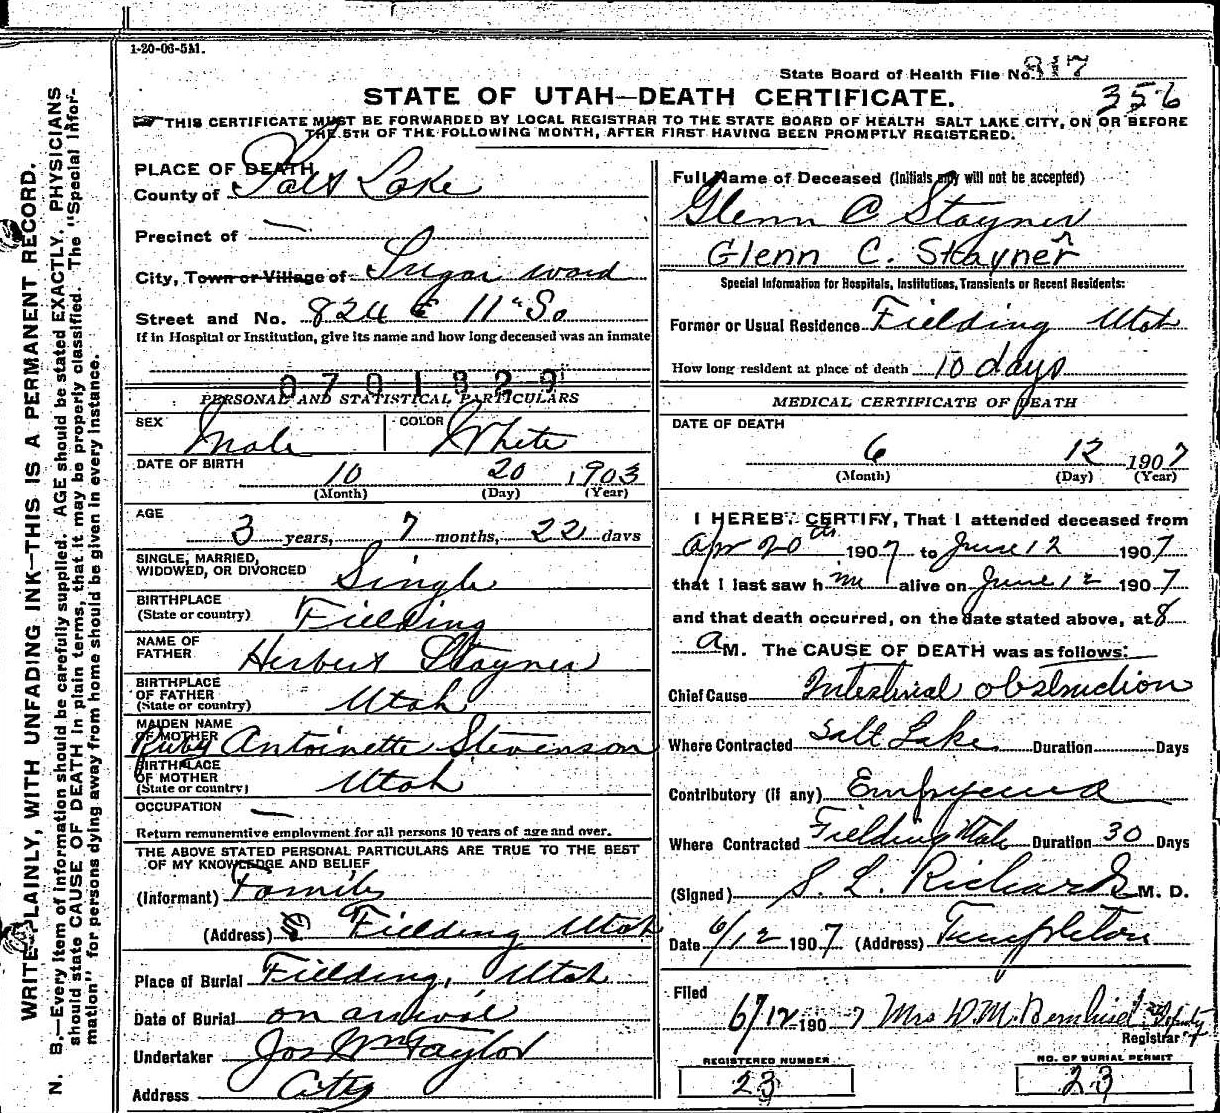 1-20-06-5M.
State Board of Health File No. 817
356
STATE OF UTAH—DEATH CERTIFICATE.
THIS CERTIFICATE MUST BE FORWARDED BY LOCAL REGISTRAR TO THE STATE BOARD OF HEALTH SALT LAKE CITY, ON OR BEFORE
THE 5TH OF THE FOLLOWING MONTH, AFTER FIRST HAVING BEEN PROMPTLY REGISTERED.
WRITE PLAINLY, WITH UNFADING INK—THIS IS A PERMANENT RECORD.
N. B.—Every item of information should be carefully supplied. AGE should be stated EXACTLY. PHYSICIANS
should state CAUSE OF DEATH in plain terms, that it may be properly classified. The "Special Infor-
mation" for persons dying away from home should be given in every instance.
PLACE OF DEATH
County of Salt Lake
Precinct of —
City, Town or Village of Sugar ward
Street and No. 824 E 11" So
If in Hospital or Institution, give its name and how long deceased was an inmate
0701829
PERSONAL AND STATISTICAL PARTICULARS
SEX Male COLOR White
DATE OF BIRTH 10 20 1903
(Month) (Day) (Year)
AGE
3 years, 7 months, 22 days
SINGLE, MARRIED,
WIDOWED, OR DIVORCED Single
BIRTHPLACE
(State or country) Fielding
NAME OF
FATHER Herbert Stayner
BIRTHPLACE
OF FATHER
(State or country) Utah
MAIDEN NAME
OF MOTHER Ruby Antoinette Stevenson
BIRTHPLACE
OF MOTHER
(State or country) Utah
OCCUPATION —
Return remunerative employment for all persons 10 years of age and over.
THE ABOVE STATED PERSONAL PARTICULARS ARE TRUE TO THE BEST
OF MY KNOWLEDGE AND BELIEF
(Informant) Family
(Address) Fielding Utah
Place of Burial Fielding, Utah
Date of Burial on arrival
Undertaker Jos Wm Taylor
Address City
Full Name of Deceased (Initials may will not be accepted)
Glenn C Stayner
Glenn C. Stayner
Special Information for Hospitals, Institutions, Transients or Recent Residents:
Former or Usual Residence Fielding Utah
How long resident at place of death 10 days
MEDICAL CERTIFICATE OF DEATH
DATE OF DEATH
6 12 1907
(Month) (Day) (Year)
I HEREBY CERTIFY, That I attended deceased from
Apr 20th 1907 to June 12 1907
that I last saw him alive on June 12 1907
and that death occurred, on the date stated above, at 8
A M. The CAUSE OF DEATH was as follows:
Chief Cause Intestinal obstruction
Where Contracted Salt Lake Duration Days
Contributory (if any) Empyema
Where Contracted Fielding Utah Duration 30 Days
(Signed) S. L. Richards M. D.
Date 6/12 1907 (Address) Templeton
Filed
6/12 1907 Mrs D. M. Deputy
Registrar
REGISTERED NUMBER
23
NO. OF BURIAL PERMIT
23